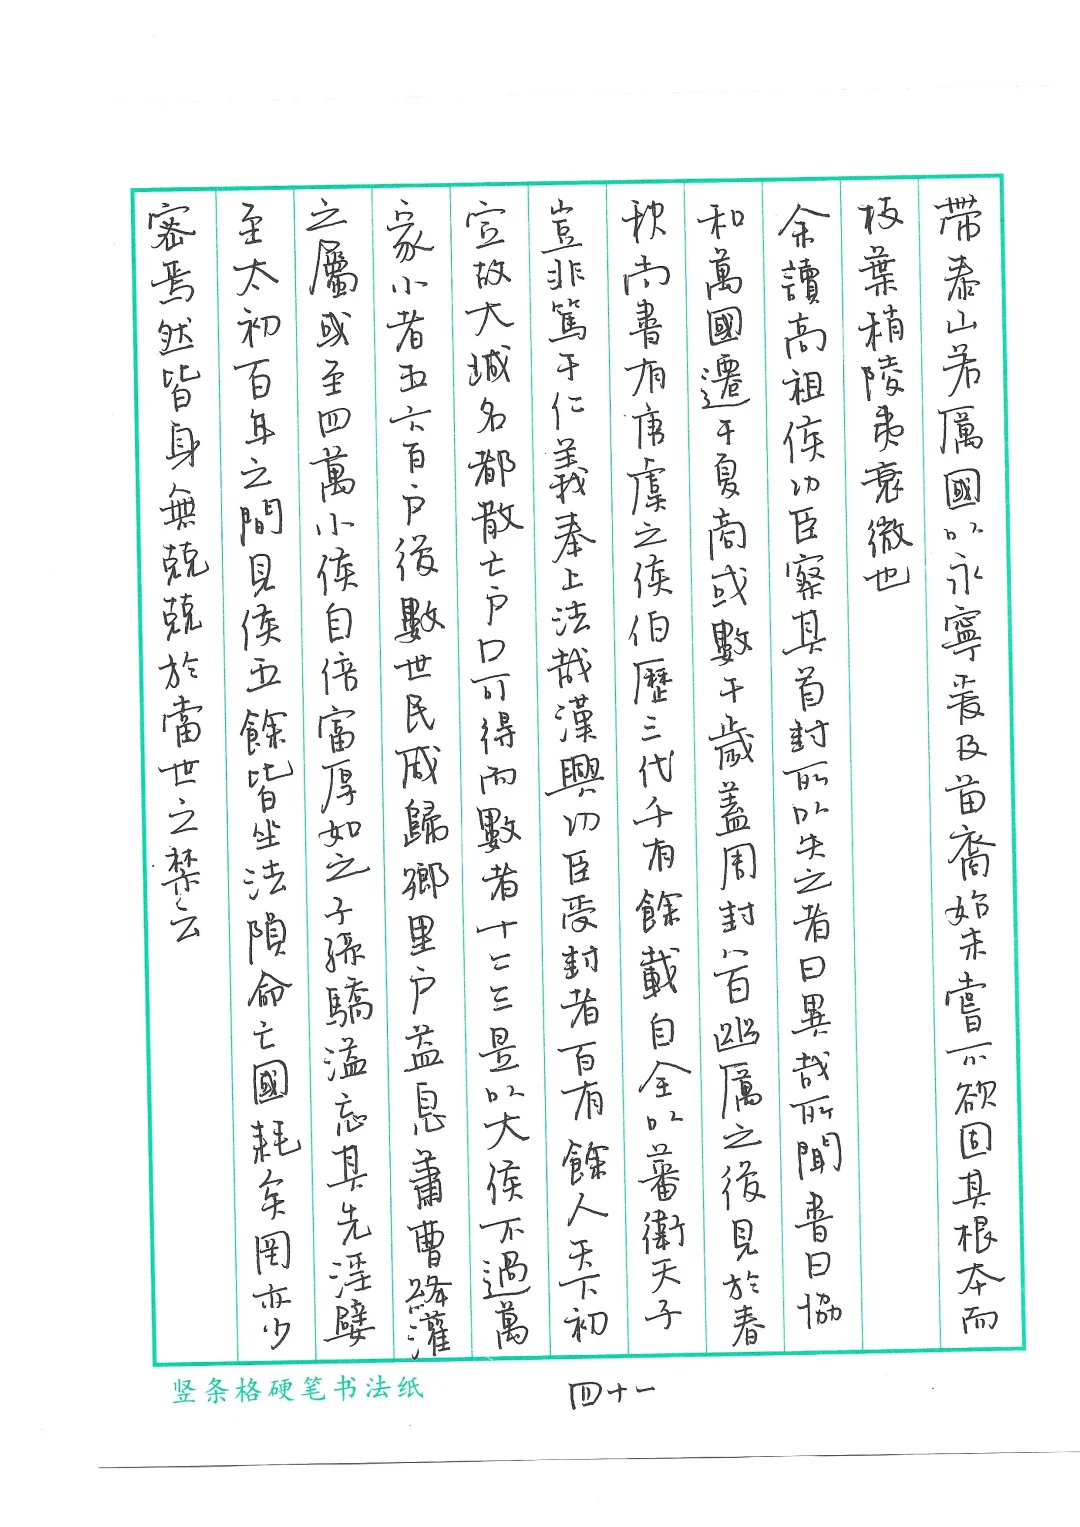 帶泰山若厲國以永寧爰及苗裔始未嘗不欲固其根本而
枝葉稍陵夷衰微也
余讀高祖侯功臣察其首封所以失之者曰異哉所聞書曰協
和萬國遷于夏商或數千歲蓋周封八百幽厲之後見於春
秋尚書有唐虞之侯伯歷三代千有餘載自全以蕃衛天子
豈非篤于仁義奉上法哉漢興功臣受封者百有餘人天下初
定故大城名都散亡户口可得而數者十二三是以大侯不過萬
家小者五六百户後數世民咸歸鄉里户益息蕭曹絳灌
之屬或至四萬小侯自倍富厚如之子孫驕溢忘其先淫嬖
至太初百年之間見侯五餘皆坐法隕命亡國耗矣罔亦少
密焉然皆身無兢兢於當世之禁云
竖条格硬笔书法纸
四十一